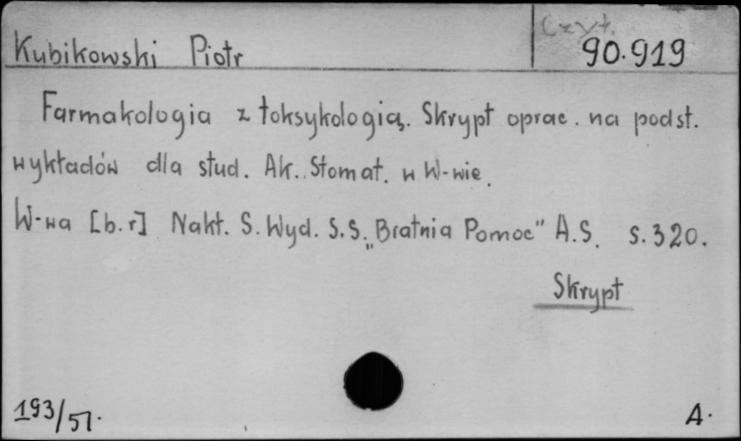 Czyt.
Kubikowski Piotr 90.919
Farmakologia z toksykologią. Skrypt oprac. na podst.
wykładów dla stud. Ak. Stomat. w W-wie.
W-wa [b.r] Nakł. S. Wyd. S.S. „Bratnia Pomoc" A.S. s. 320.
Skrypt
193/51. A.